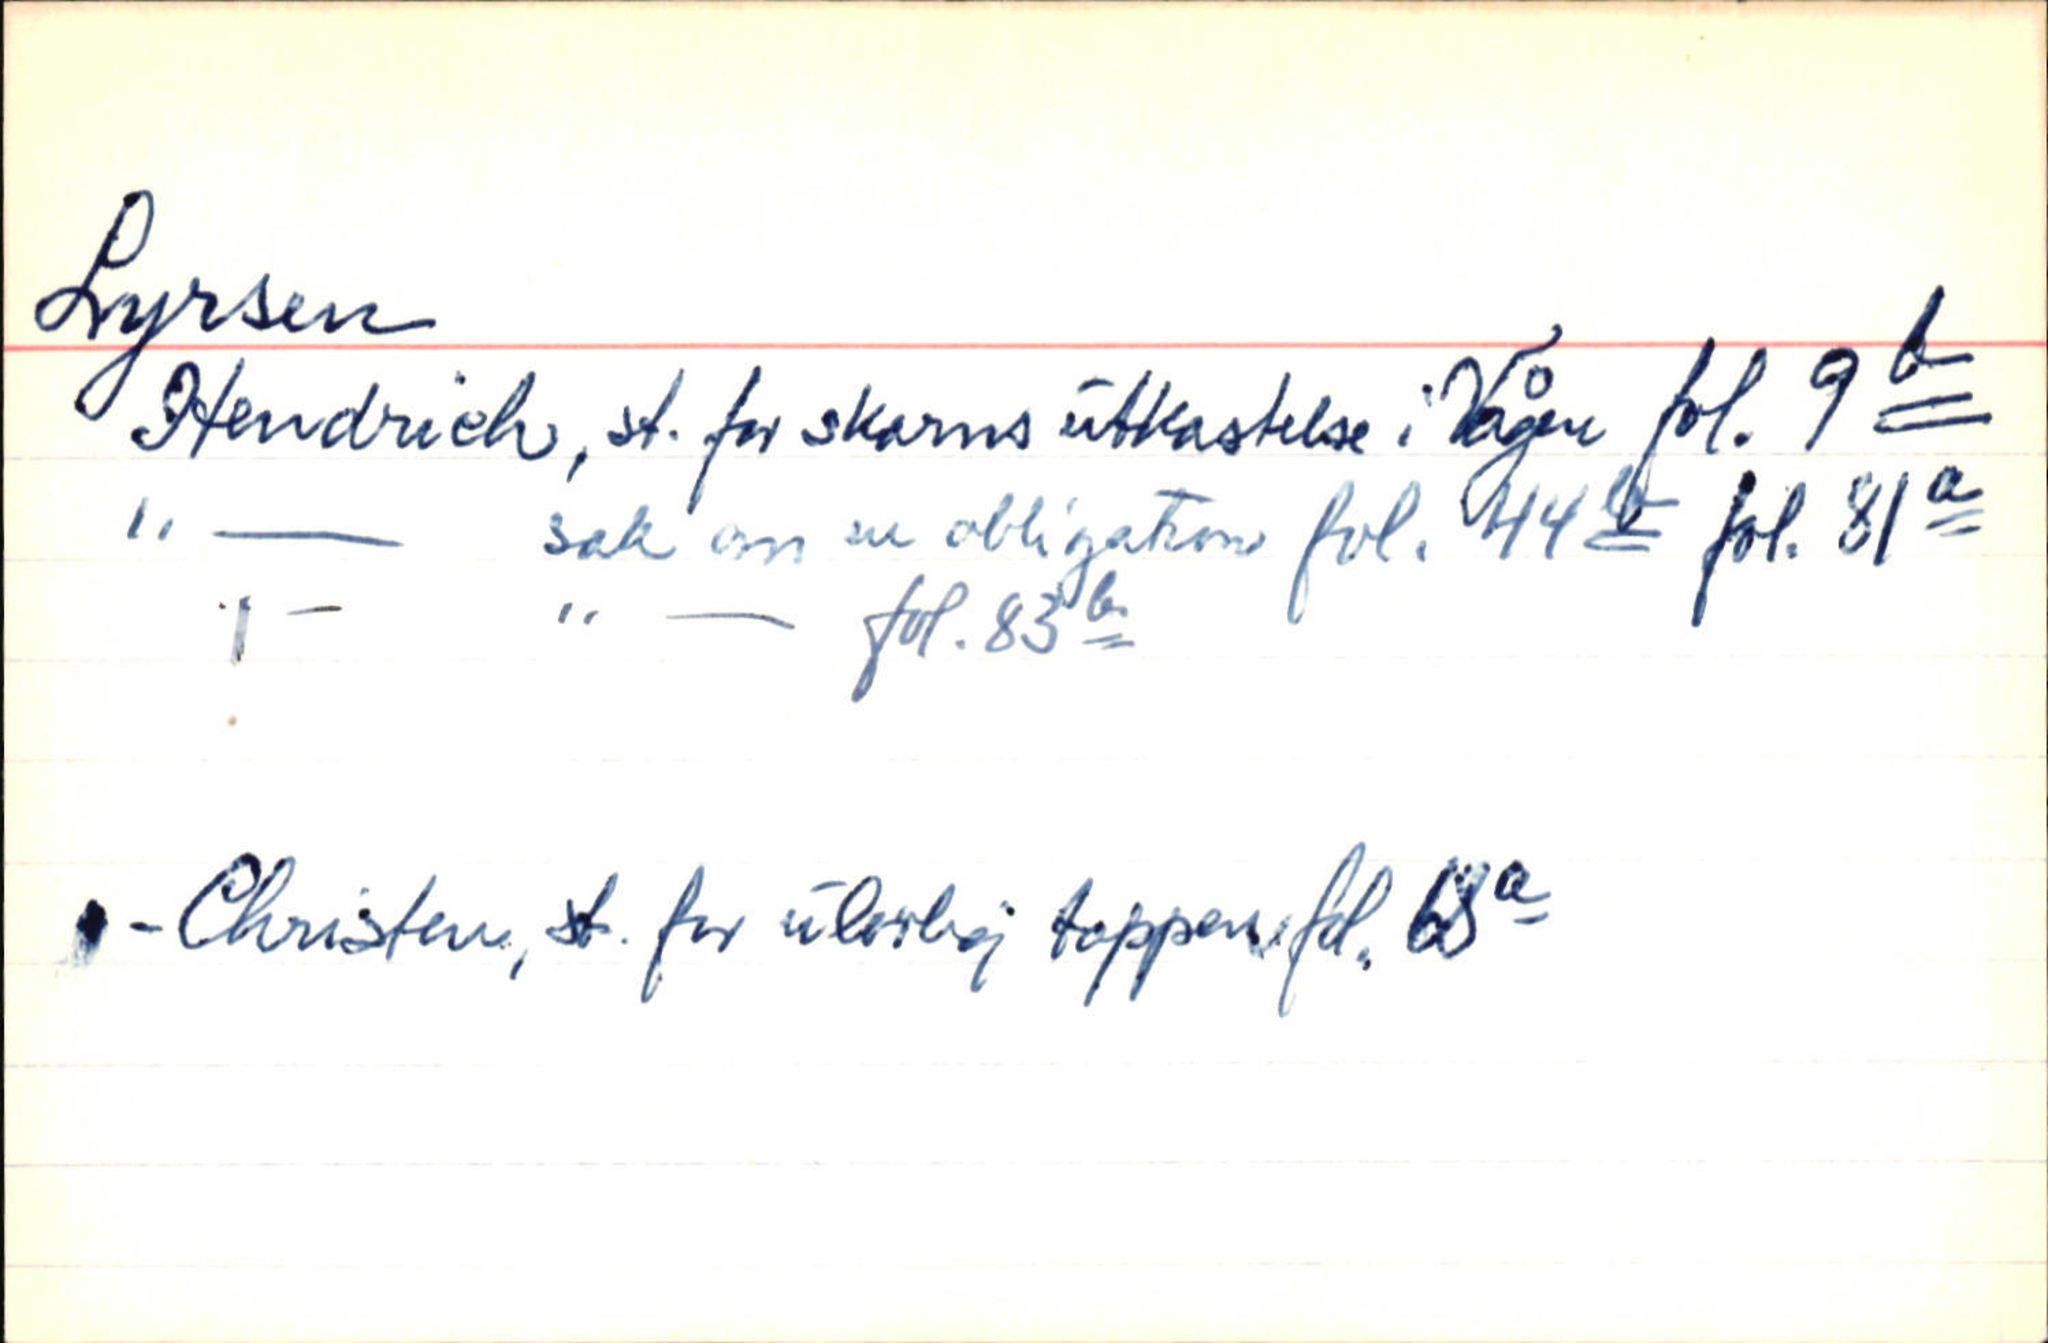 Lyrsen
Hendrich, st. for skarns ütkastelse i Vågen fol. 9 b
" — sak om en obligation fol. 44 b fol. 81 a
" — " — fol. 83 b
- Christen, st. for ülovlig tappen fol. a